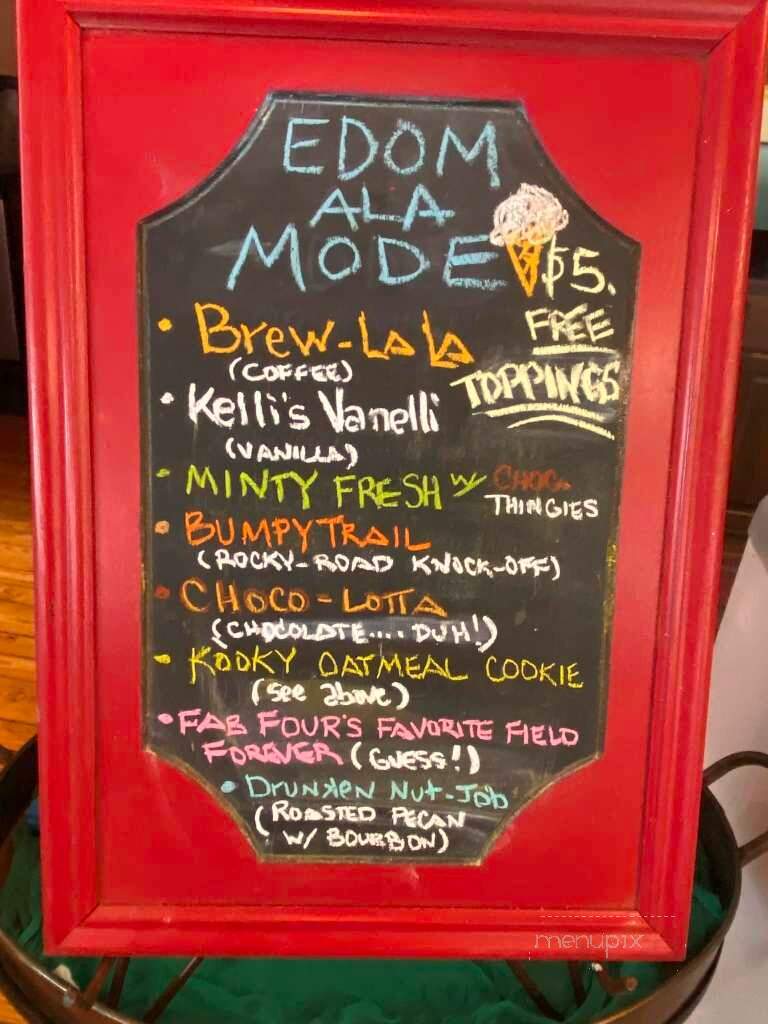 EDOM
ALA
MODE
$5.
FREE
TOPPINGS
• Brew-LaLa
(COFFEE)
• Kelli's Vanelli
(VANILLA)
• MINTY FRESH w/ CHOC.
THINGIES
• BUMPY TRAIL
(ROCKY-ROAD KNOCK-OFF)
• CHOCO-LOTTA
(CHOCOLATE.... DUH!)
• KOOKY OATMEAL COOKIE
(see above)
• FAB FOUR'S FAVORITE FIELD
FOREVER (GUESS!)
• Drunken Nut-Job
(ROASTED PECAN
W/ BOURBON)
menupix